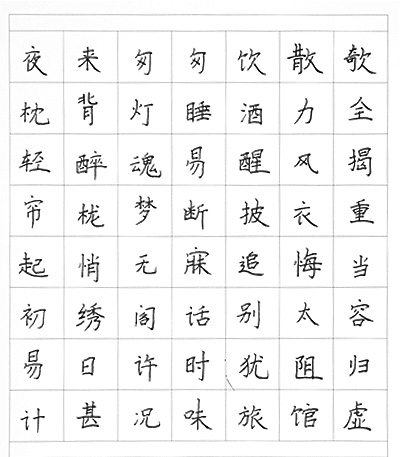 夜来匆匆饮散欹
枕背灯睡酒力全
轻醉魂易醒风揭
帘栊梦断披衣重
起悄无寐追悔当
初绣阁话别太容
易日许时犹阻归
计甚况味旅馆虚